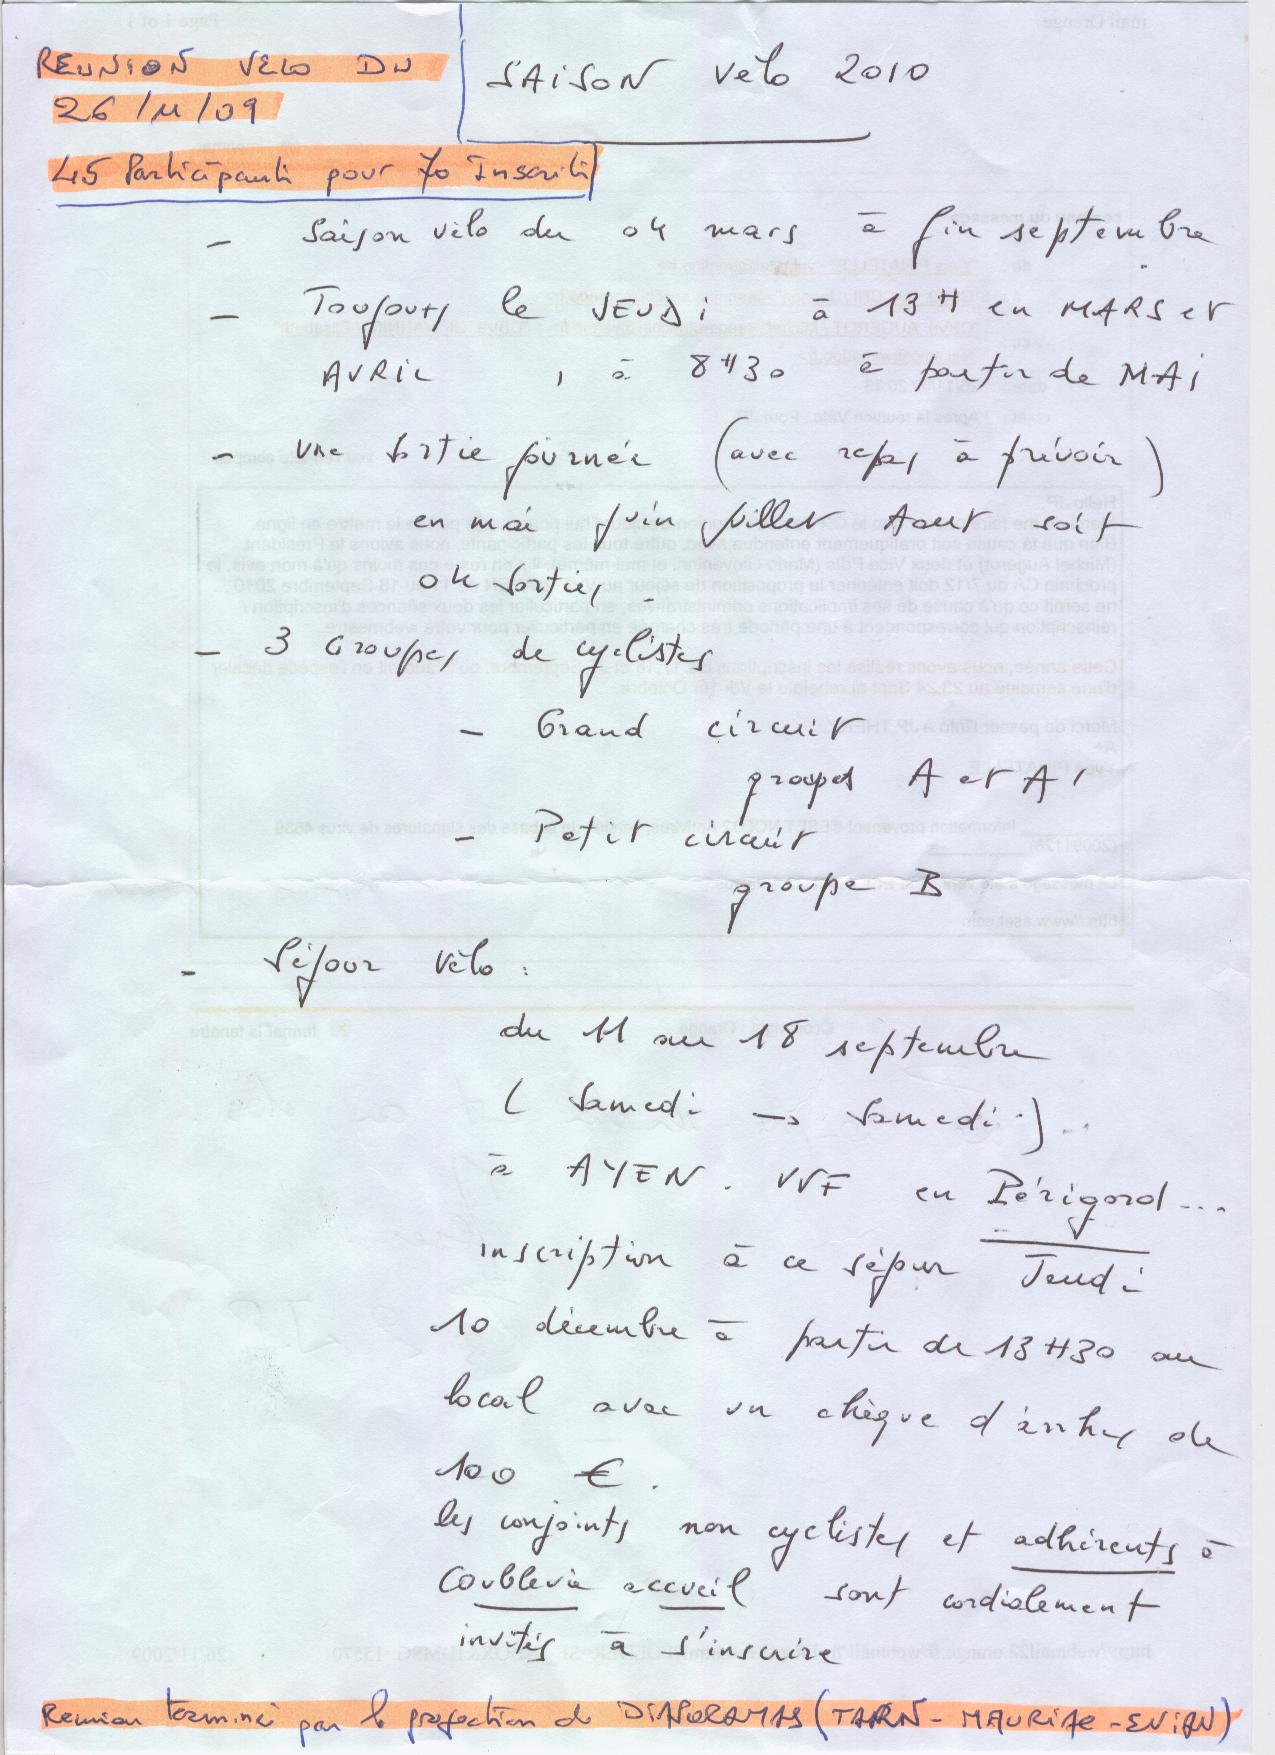 REUNION VELO DU
26/11/09
SAISON Vélo 2010
45 Participants pour 70 Inscrits
- Saison vélo du 04 mars à fin septembre
- Toujours le JEUDi à 13H en MARS et
AVRIL , à 8H30 à partir de MAi
- une sortie journée (avec repas à prévoir)
en mai juin juillet Aout soit
04 sorties
- 3 Groupes de cyclistes
- Grand circuit
groupes A et A'
- Petit circuit
groupe B
- Séjour Vélo :
du 11 au 18 septembre
( Samedi → Samedi )...
à AYEN. VVF en Périgord...
inscription à ce séjour Jeudi
10 décembre à partir de 13H30 au
local avec un chèque d'arrhes de
100 €.
les conjoints non cyclistes et adhérents à
Coublevie accueil sont cordialement
invités à s'inscrire
Reunion terminée par la projection de DIAPORAMAS (TARN - MAURIAC - EVIAN)